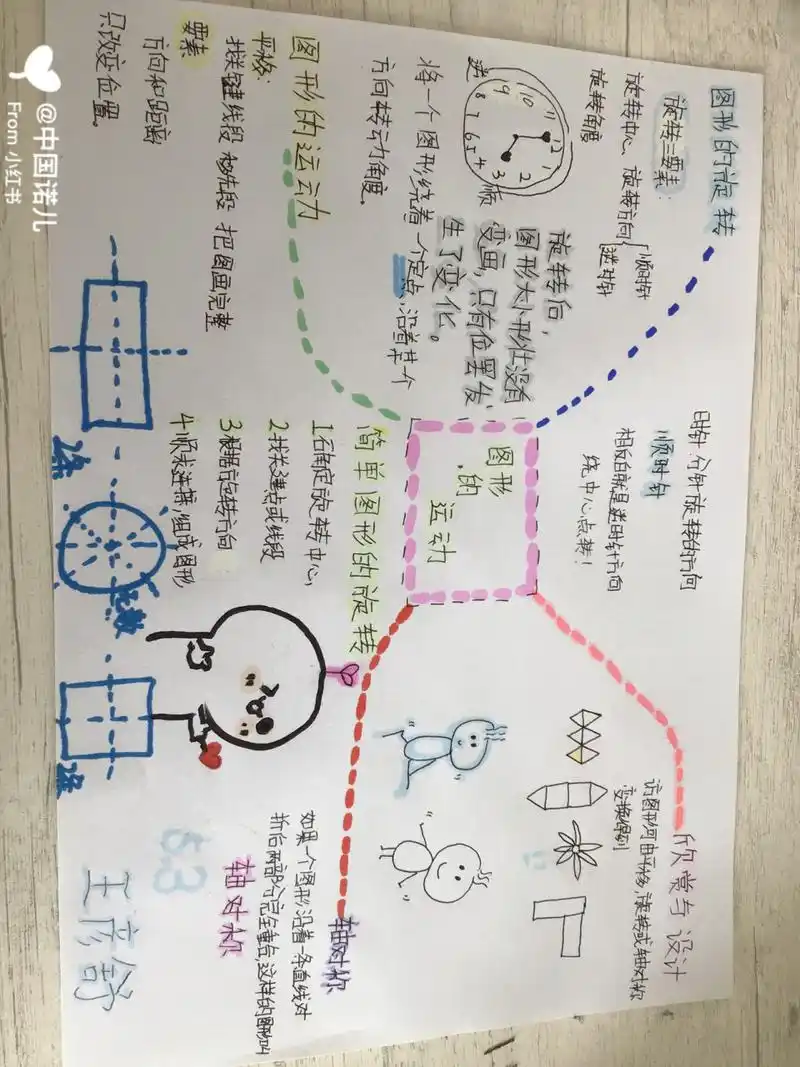 图形的旋转
旋转三要素:
旋转中心、旋转方向{顺时针
逆时针
旋转角度
逆
10
11
12
1
2
3
4
5
6
7
8
9
顺
将一个图形绕着一个定点、沿着某个
方向转动角度。
旋转后,
图形大小形壮没有
变画,只有位置发
生了变化。
时针 分针旋转的方向
顺时针
相反的就是逆时针方向
绕中心点转!
欣赏与设计
访图形何由平移,旋转或轴对称
变换得到
图形
的
运动
图形的运动
平移:
找关键线段 移先段 把图画完整
要素
方向和距离
只改变位置。
简单图形的旋转
1石角定旋转中心,
2找关键点或线段
3根据旋转方向
4顺求连接,组成图形
轴对称
如果一个图形沿着一条直线对
折后两部分完全重合,这样的图形叫
轴对称
2条
无数
53
王彦舒
@中国诺儿
From 小红书